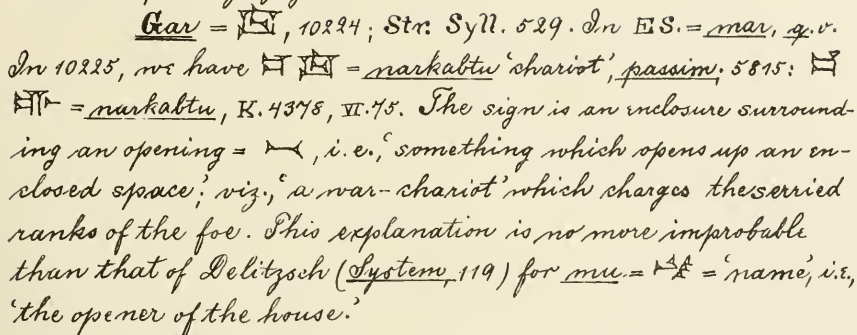 Gar = 𒃼, 10224; Str. Syll. 529. In ES. = mar, q. v.
In 10225, we have 𒄑 𒃼 = narkabtu 'chariot', passim. 5815:
= narkabtu, K. 4378, VI. 75. The sign is an enclosure surround-
ing an opening = , i.e., 'something which opens up an en-
closed space,' viz., 'a war-chariot' which charges the serried
ranks of the foe. This explanation is no more improbable
than that of Delitzsch (System, 119) for mu = = 'name', i.e.,
'the opener of the house.'